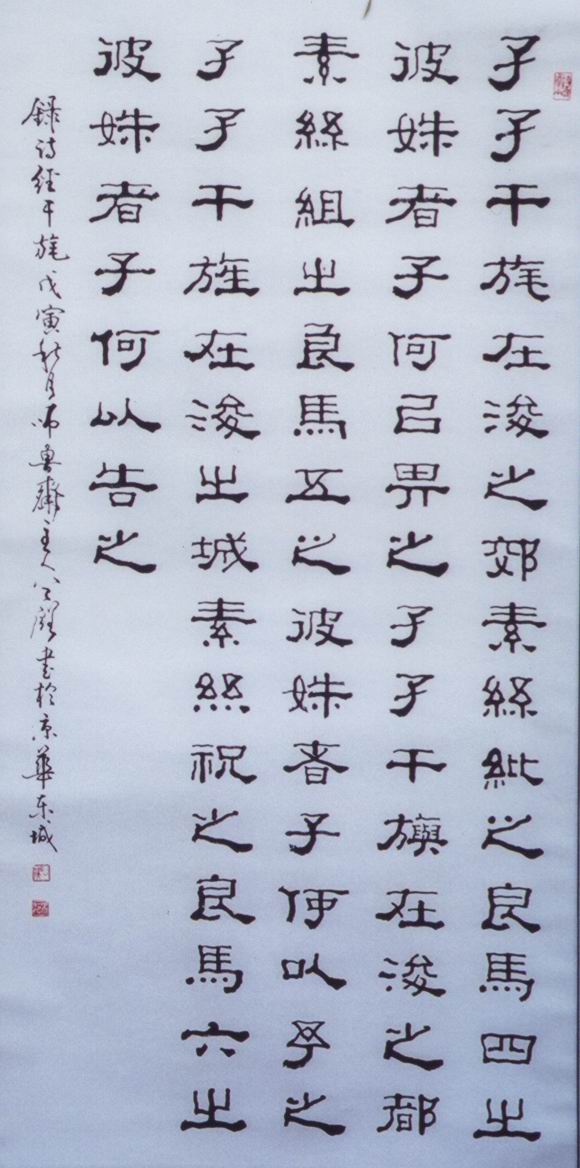 孑孑干旄在浚之郊素絲紕之良馬四之
彼姝者子何㠯畀之孑孑干旟在浚之都
素絲組之良馬五之彼姝者子何以予之
孑孑干旌在浚之城素絲祝之良馬六之
彼姝者子何以告之
錄詩經干旄戊寅秋月師魯齋主人書於京華东城